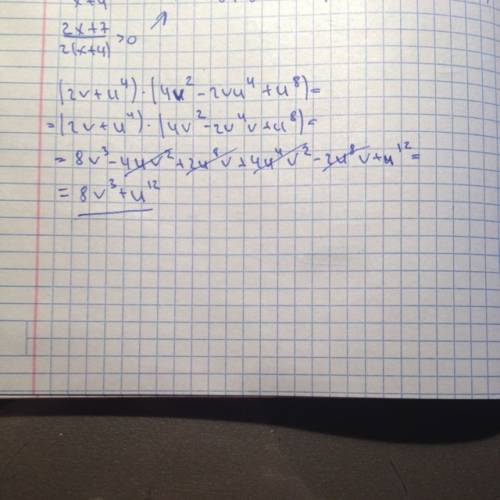 x+4
2x+7
2(x+4) >0
(2v+u⁴)·(4v²-2vu⁴+u⁸)=
=(2v+u⁴)·(4v²-2u⁴v+u⁸)=
=8v³-4u⁴v²+2u⁸v+4u⁴v²-2u⁸v+u¹²=
=8v³+u¹²